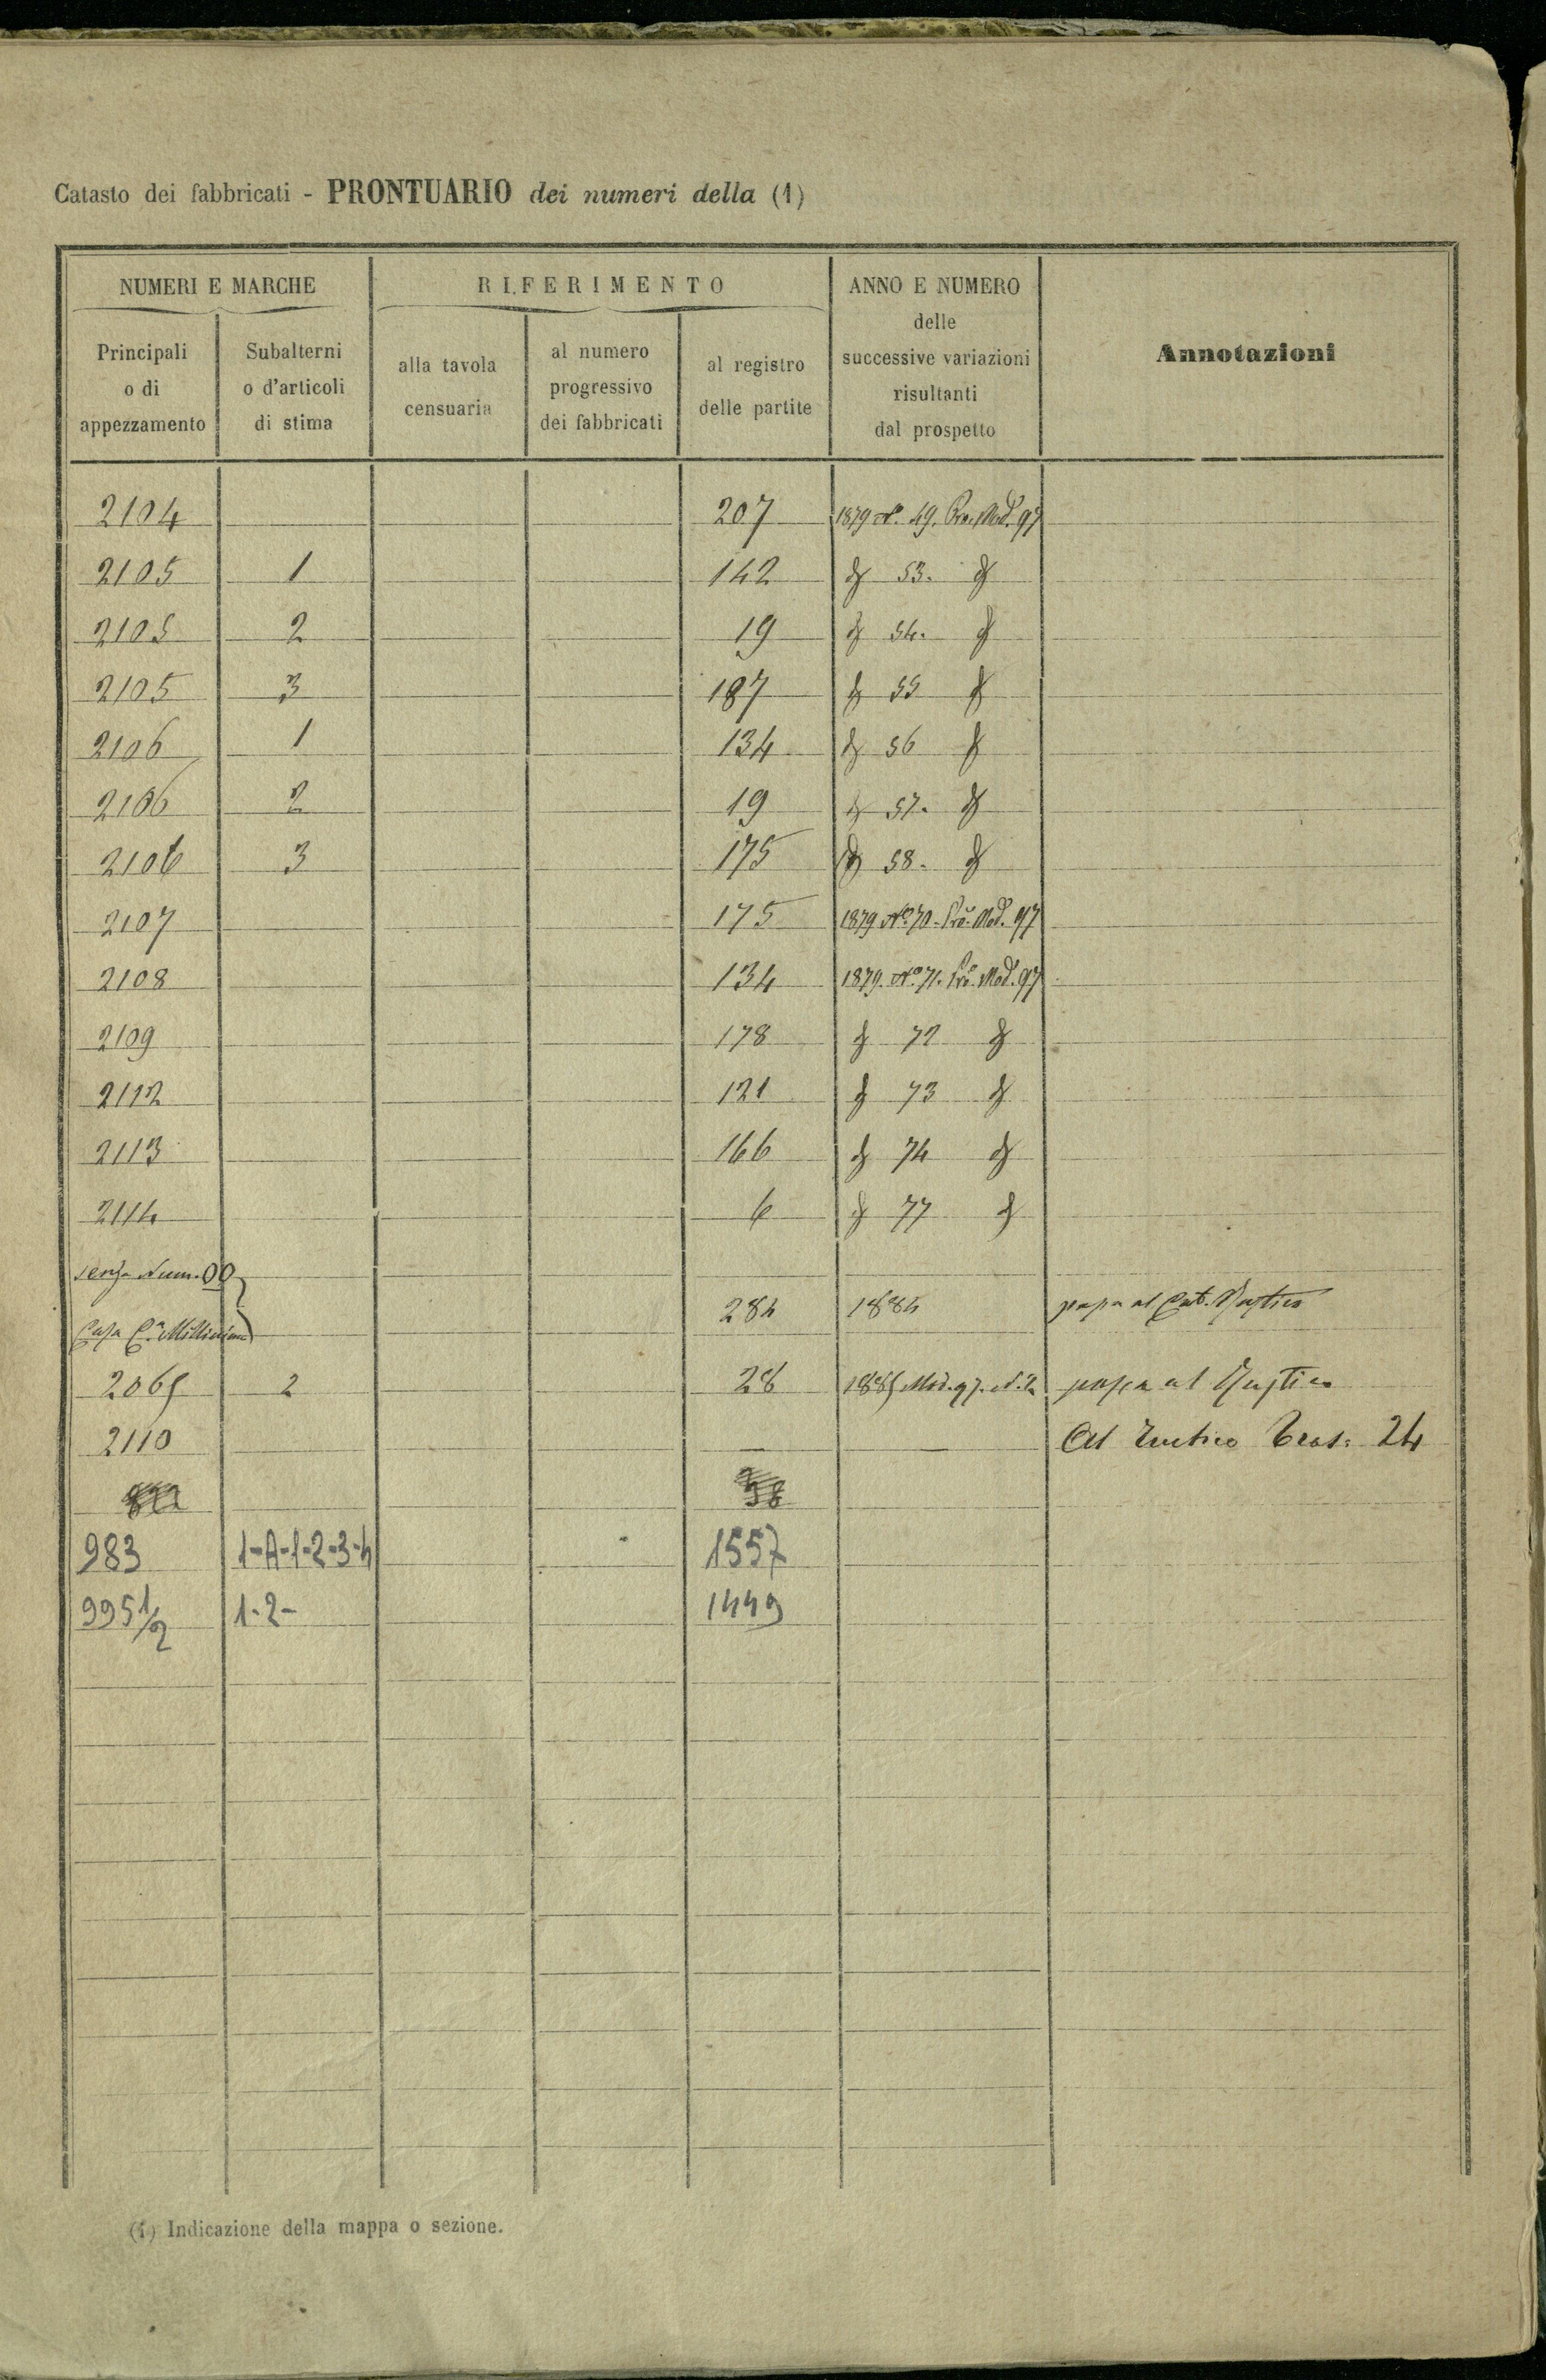 Catasto dei fabbricati - PRONTUARIO dei numeri della (1)
NUMERI E MARCHE
RIFERIMENTO
ANNO E NUMERO
delle
successive variazioni
risultanti
dal prospetto
Annotazioni
Principali
o di
appezzamento
Subalterni
o d'articoli
di stima
alla tavola
censuaria
al numero
progressivo
dei fabbricati
al registro
delle partite
2104 207 1879 N. 49. Mod. 97
2105 1 142 53.
2105 2 19 54.
2105 3 187 55
2106 1 134 56
2106 2 19 57.
2106 3 175 58.
2107 175 1879 No. 70 Mod. 97
2108 134 1879. No. 71. Mod. 97
2109 178 72
2112 121 73
2113 166 74
2114 6 77
senza Num. 00
284 1884 passa al Cat. Rustico
Casa
2065 2 28 1885 Mod. 97. N. 2 passa al Rustico
2110 — — Al Rustico Tras: 24
983 1-A-1-2-3-4 1557
995 1/2 1-2- 1449
(1) Indicazione della mappa o sezione.